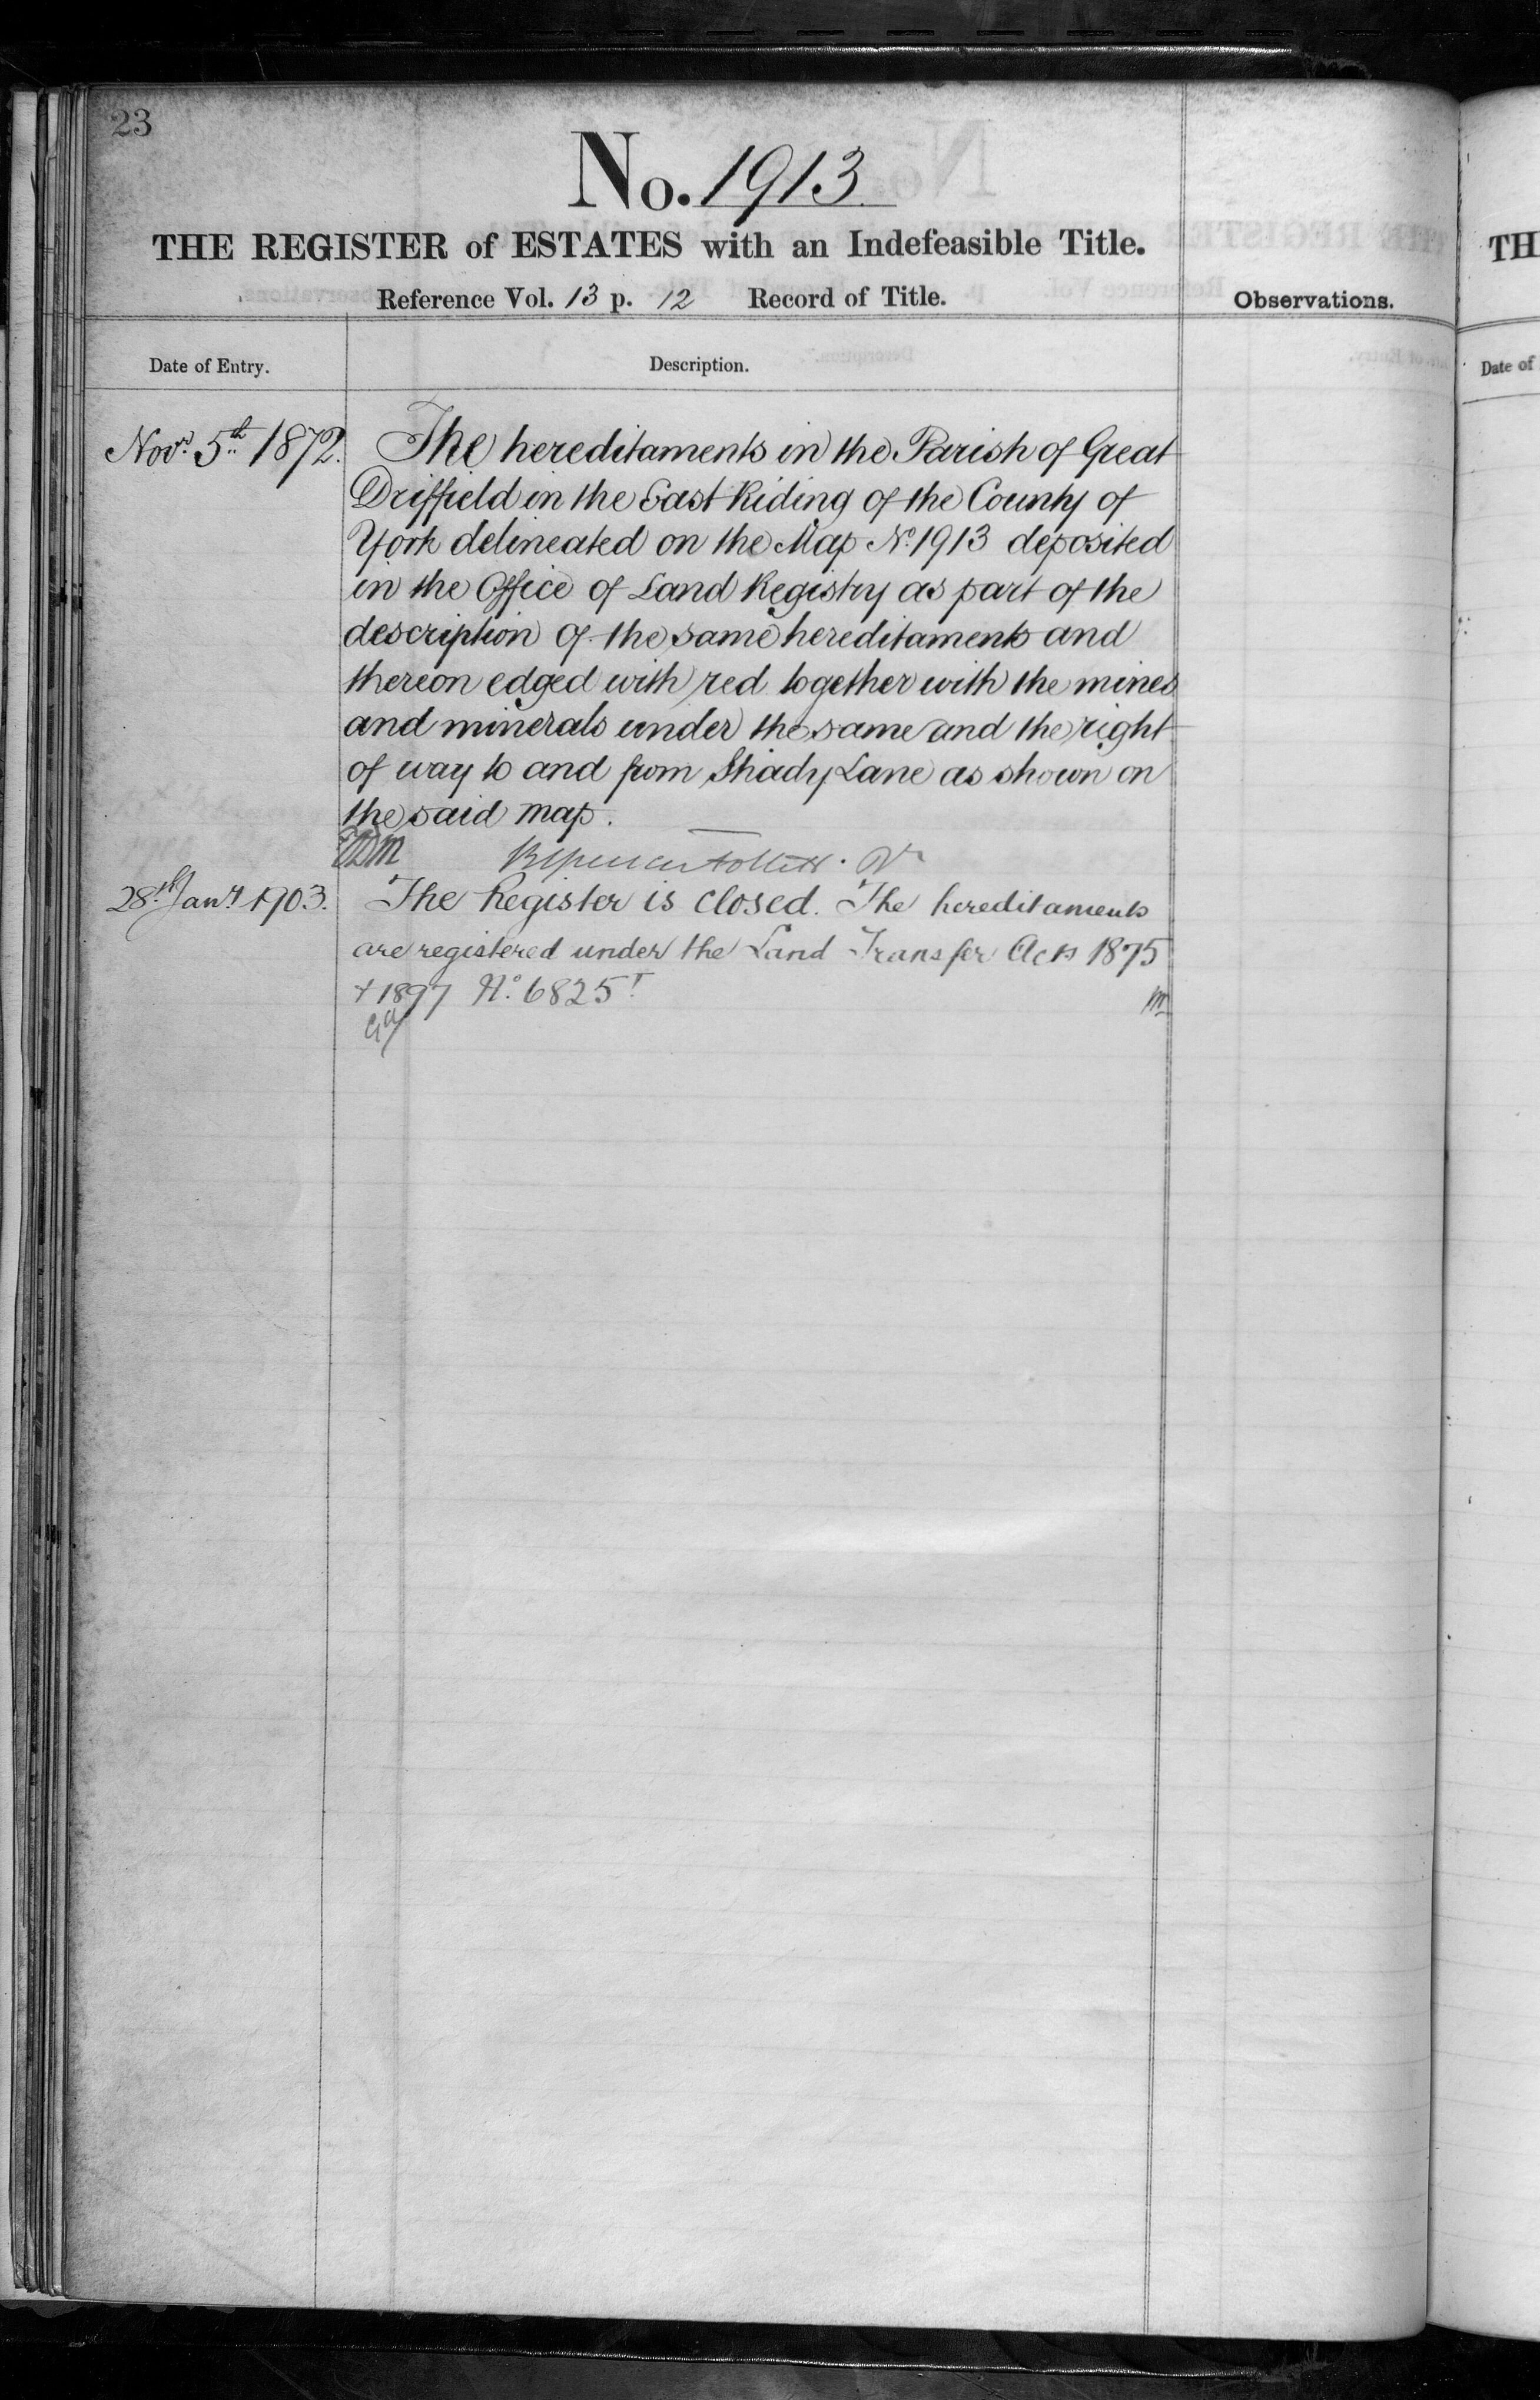 23
No. 1913
THE REGISTER of ESTATES with an Indefeasible Title.
Reference Vol. 13 p. 12 Record of Title.
Observations.
Date of Entry.
Description.
Novr. 5th 1872.
The hereditaments in the Parish of Great
Driffield in the East Riding of the County of
York delineated on the Map No. 1913 deposited
in the Office of Land Registry as part of the
description of the same hereditaments and
thereon edged with red together with the mines
and minerals under the same and the right
of way to and from Shady Lane as shown on
the said map.
28th Jany. 1903.
The Register is closed. The hereditaments
are registered under the Land Transfer Acts 1875
+ 1897 No. 6825
TH
Date of